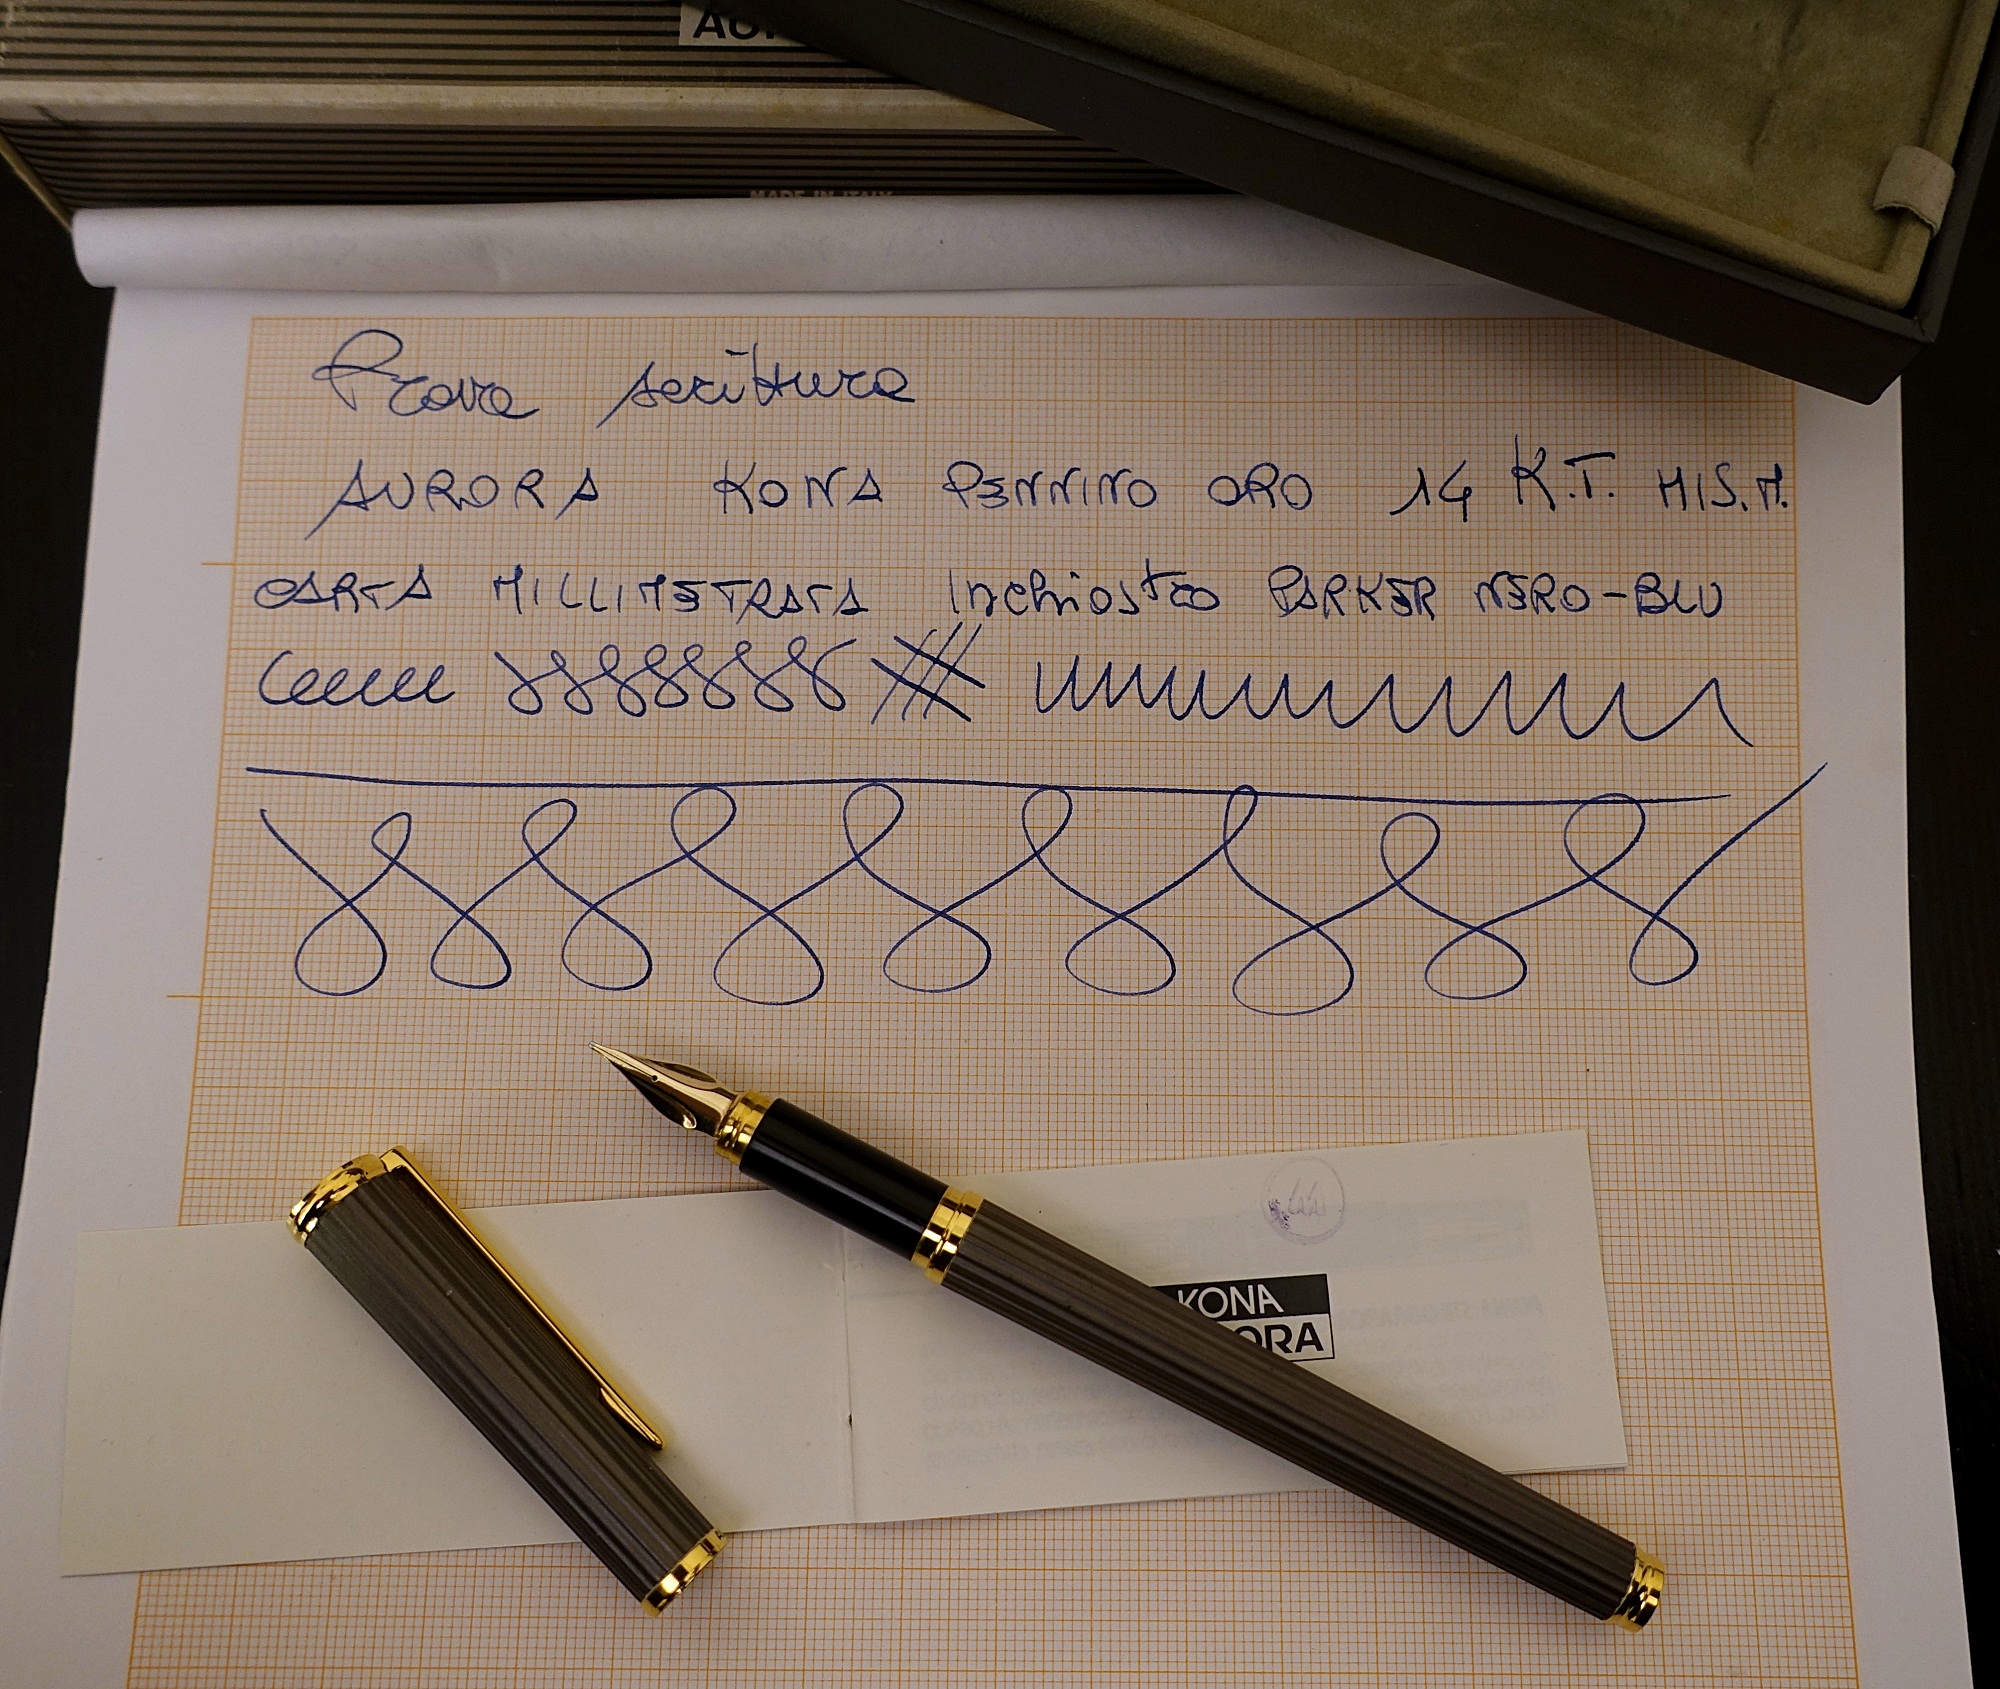 MADE IN ITALY
Prova scrittura
AURORA KONA PENNINO ORO 14 K.T. MIS.M.
CARTA MILLIMETRATA Inchiostro PARKER NERO-BLU
KONA
ORA